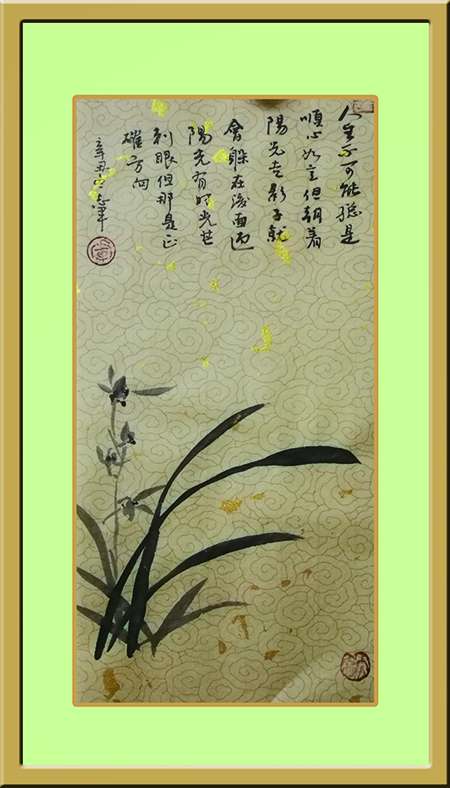 人生不可能总是
順心如意但朝着
陽光走影子就
會躲在後面而
陽光有时光芒
刺眼但那是正
確方向
辛丑